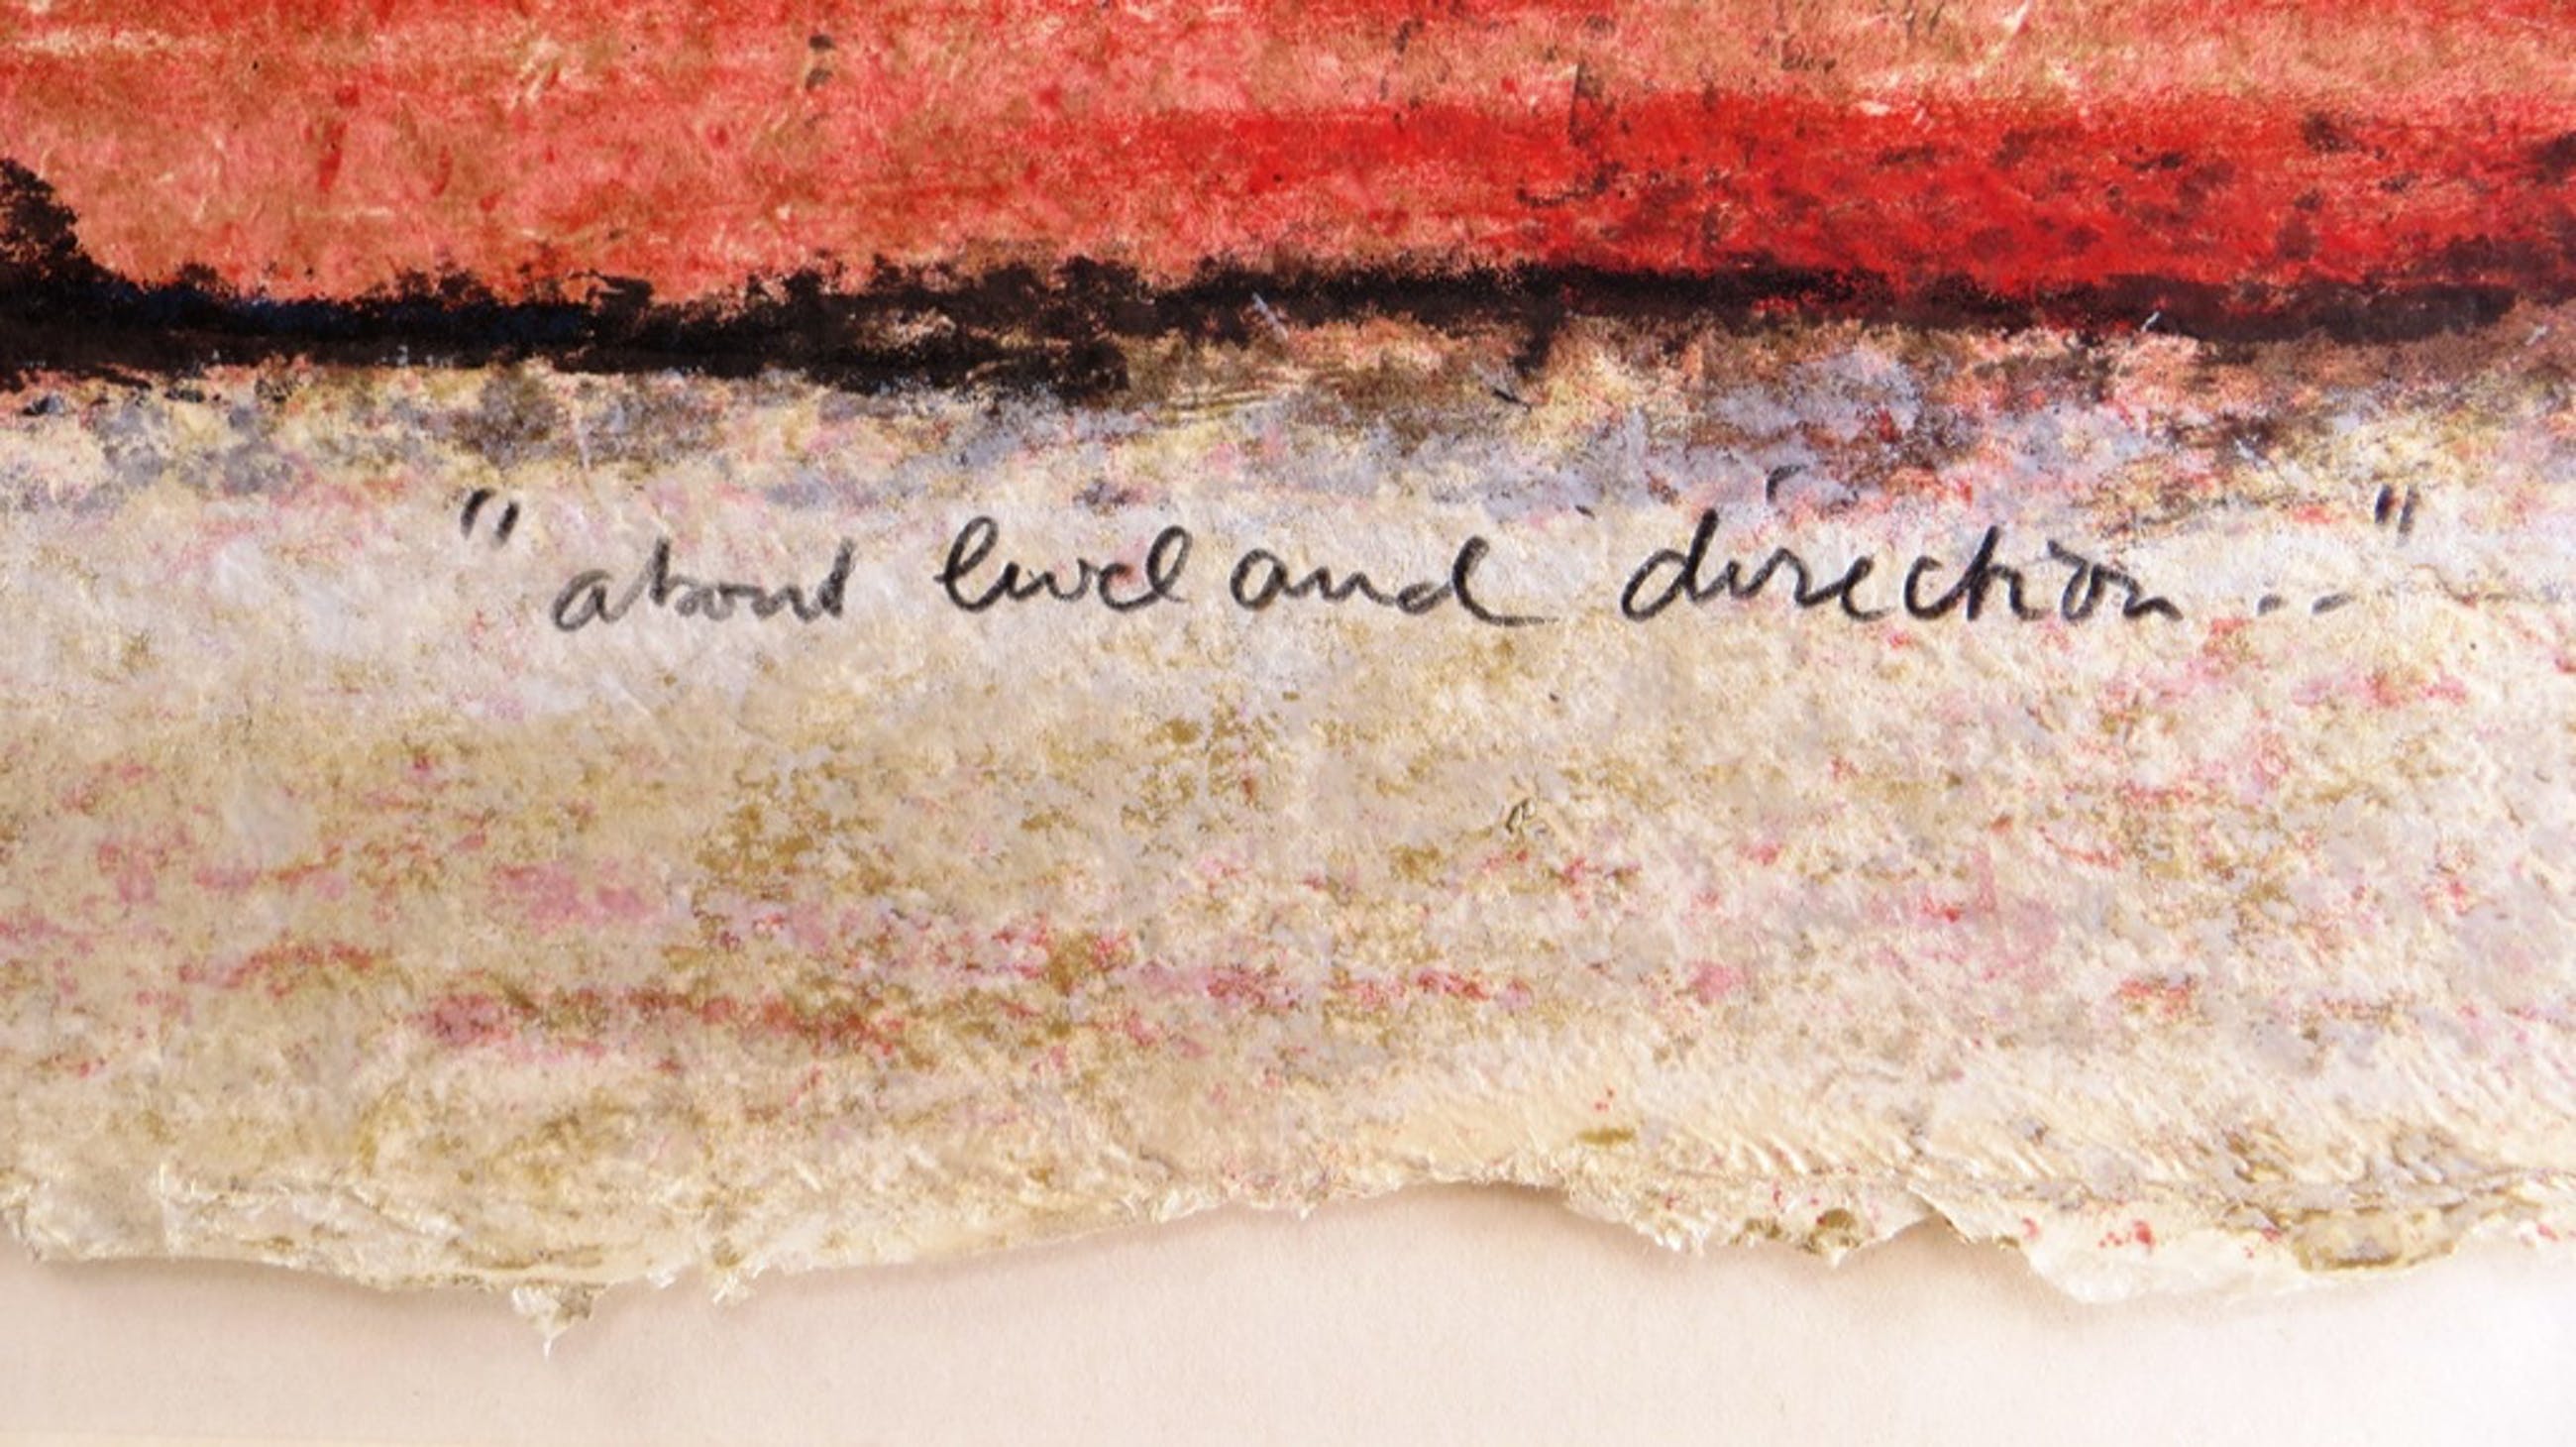 "about level and direction .."